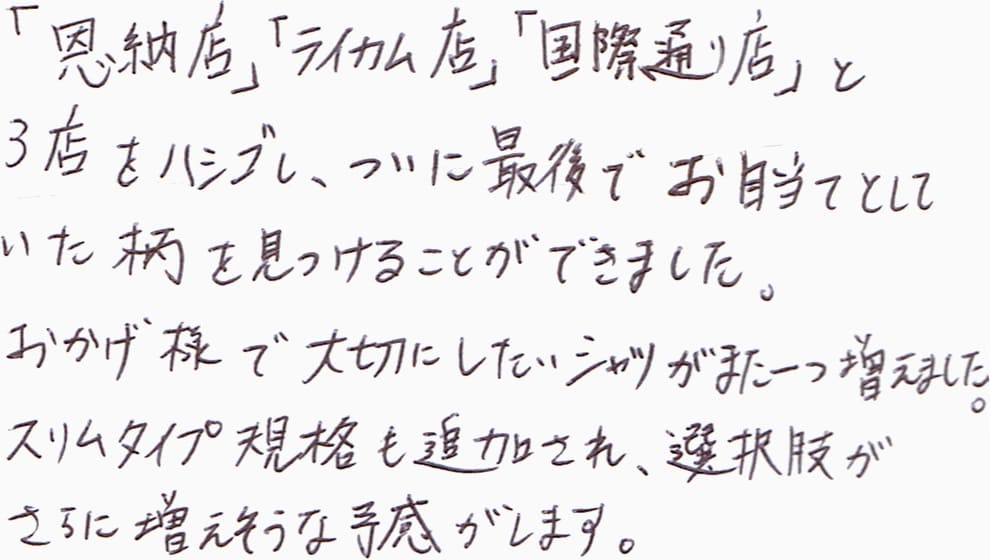 「恩納店」「ライカム店」「国際通り店」と
3店をハシゴし、ついに最後でお目当てとして
いた柄を見つけることができました。
おかげ様で大切にしたいシャツがまた一つ増えました。
スリムタイプ規格も追加され、選択肢が
さらに増えそうな予感がします。